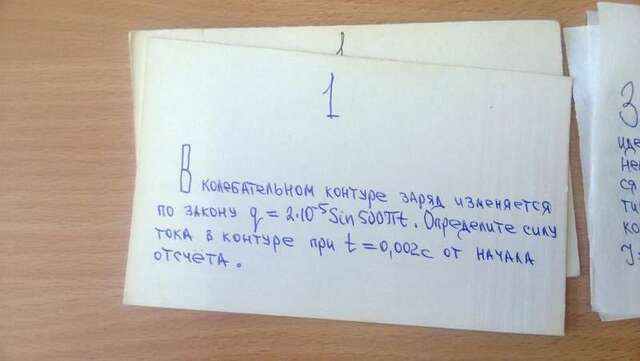 1
1
В колебательном контуре заряд изменяется
по закону q = 2·10⁻⁵Sin500πt. Определите силу
тока в контуре при t = 0,002с от начала
отсчёта.
3
иде
не
ся
ти
ко